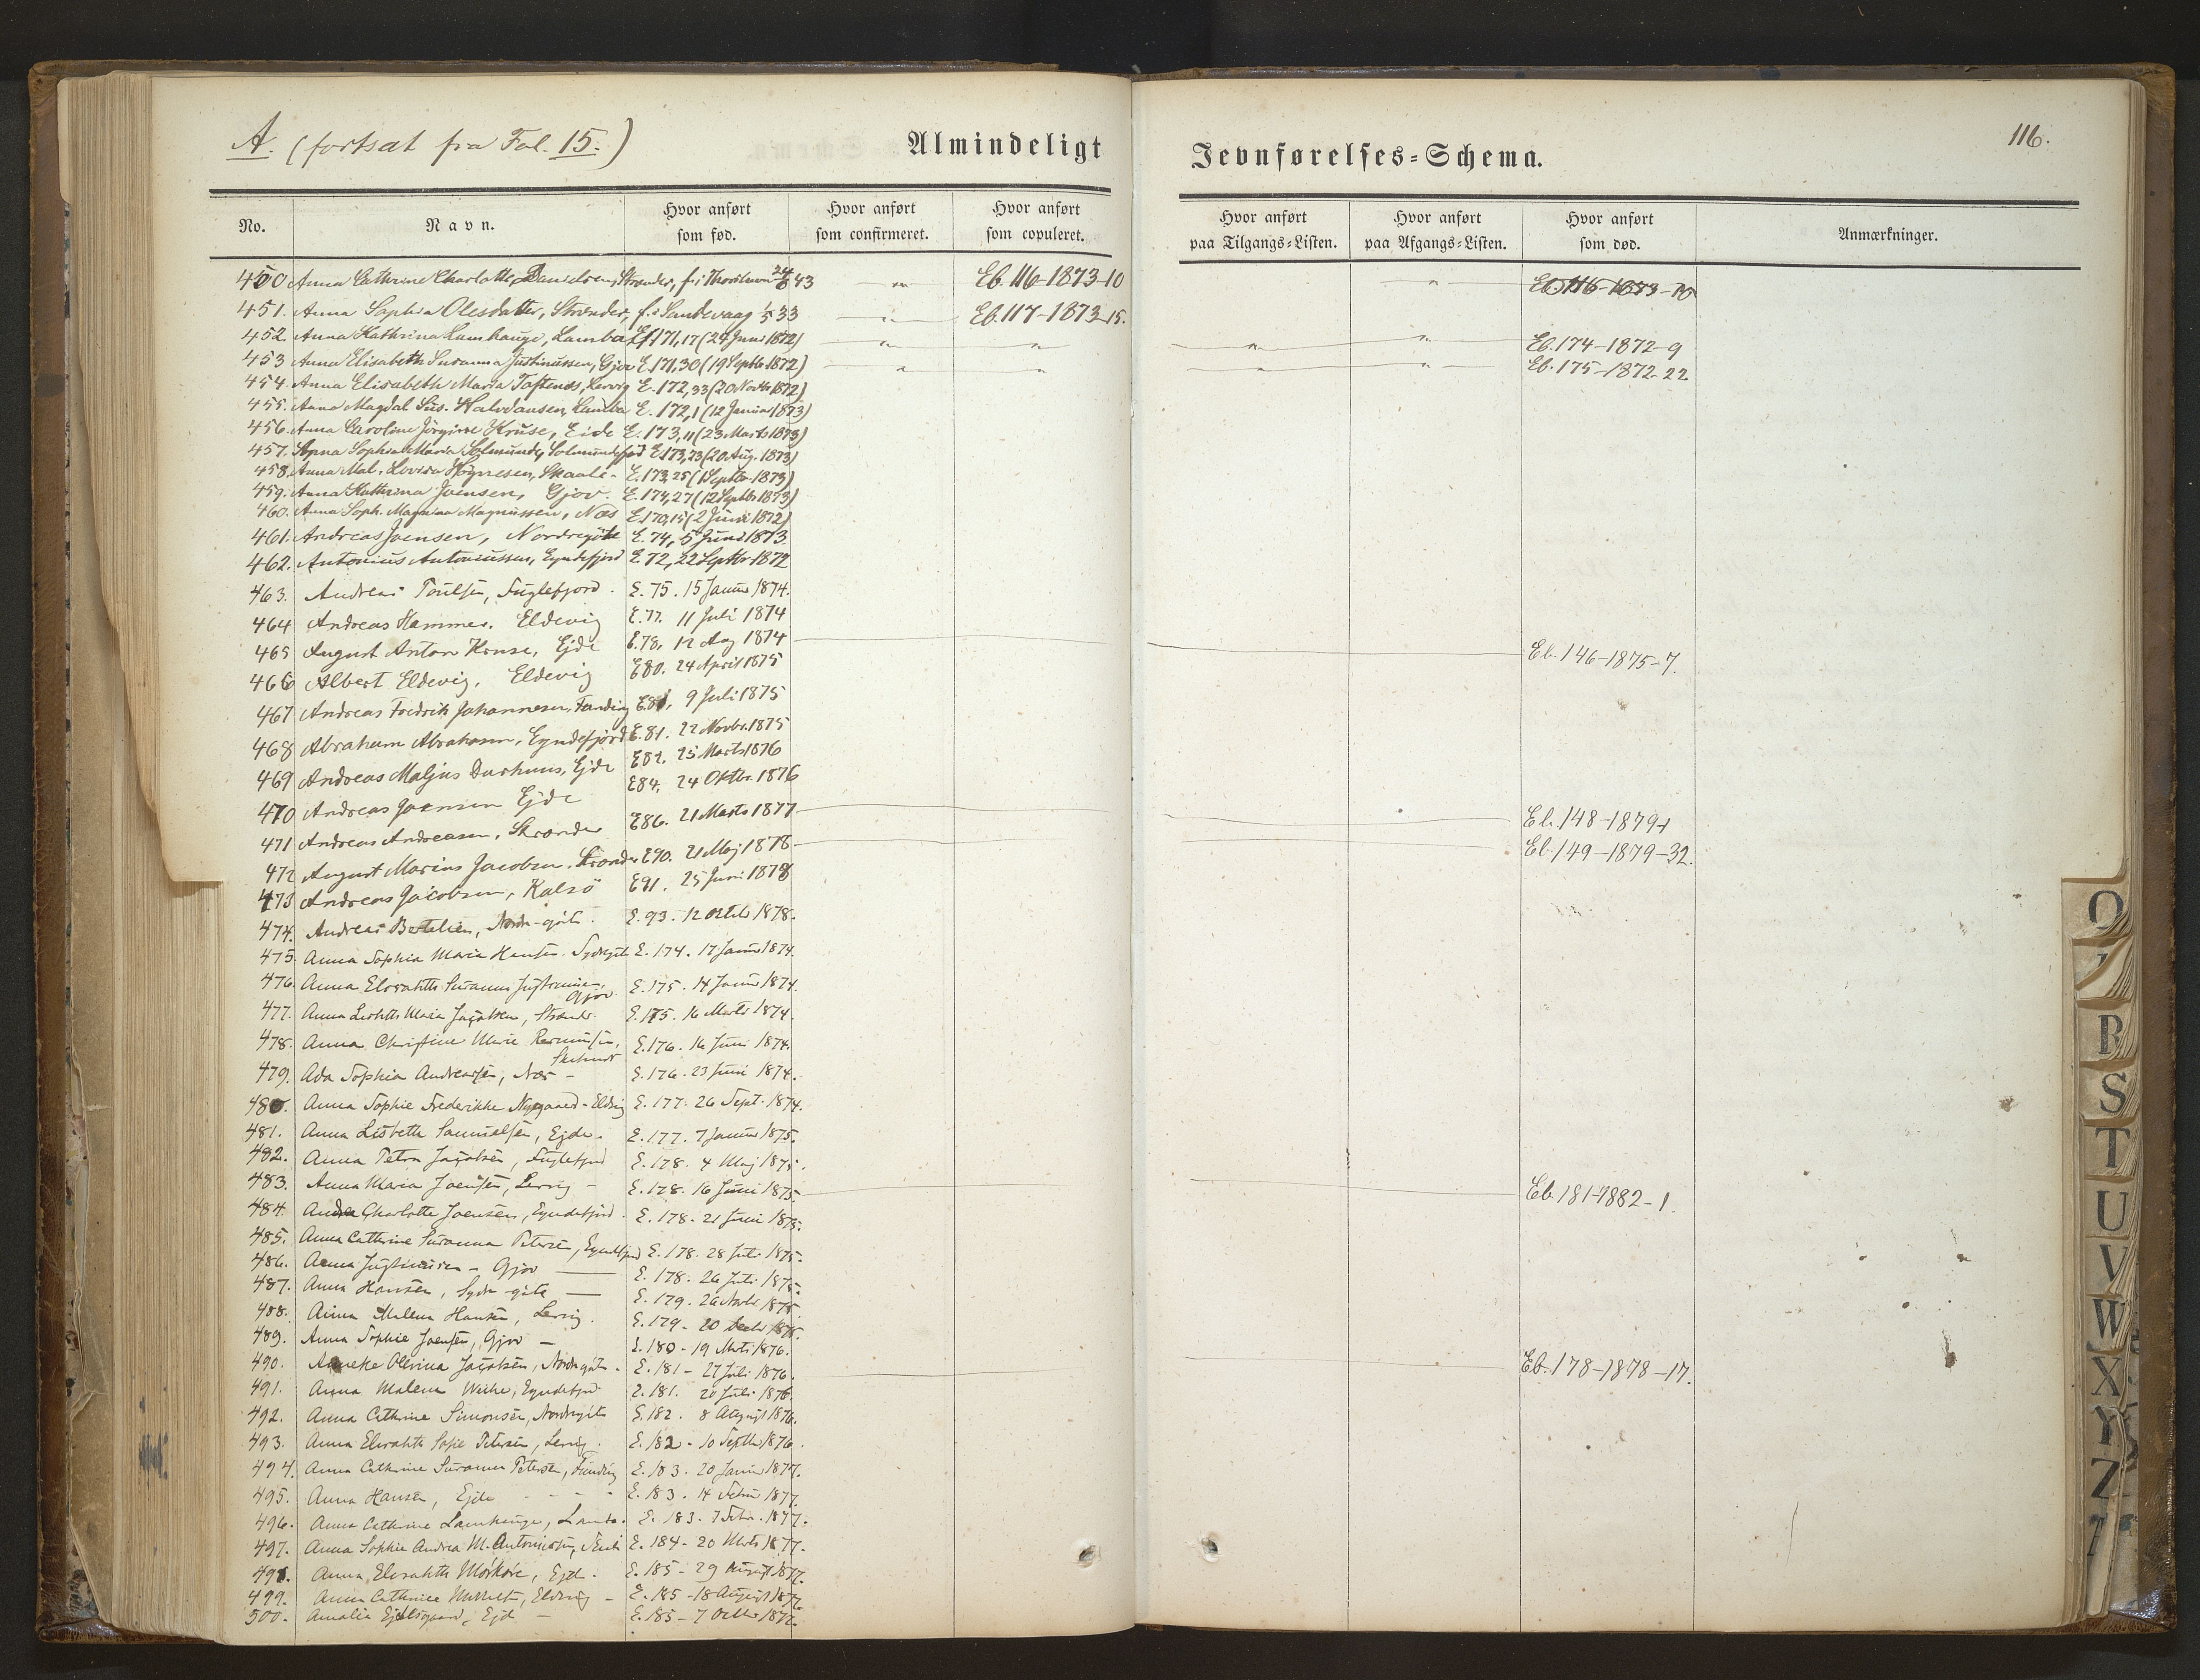 A. (fortsat fra Fol. 15.)
Almindeligt Jevnførelses=Schema.
116.
No. Navn. Hvor anført som fød. Hvor anført som confirmeret. Hvor anført som copuleret. Hvor anført paa Tilgangs=Listen. Hvor anført paa Afgangs=Listen. Hvor anført som død. Anmærkninger.
450 Anna Cathrine Charlotte Danielsen, Strænder, f. i Thorshavn 24/8 43 Eb. 116-1873-10 Eb. 116-1873-10
451. Anna Sophia Olesdatter, Strænder, f. i Sandevaag 1/5 33 Eb. 117-1873-15.
452. Anna Kathrina Lamhauge, Lamba E. 171,17 (24 Juni 1872) Eb. 174-1872-9
453 Anna Elisabeth Susanna Justinussen, Gjov E. 171,30 (19 Septbr 1872) Eb. 175-1872-22
454. Anna Elisabeth Maria Toftenæs, Lervig E. 172,33 (20 Novbr 1872)
455. Anna Magdal. Sus. Halvdansen, Lamba E. 172,1 (12 Januar 1873)
456. Anna Caroline Jörgine Kruse, Eide E. 173,11 (23 Marts 1873)
457. Anna Sophia Maria Solmunde, Solmundefjord E. 173,23 (20 Aug. 1873)
458. Anna Mal. Lovisa Högnesen, Skaale - E. 173,25 (1 Septbr 1873)
459. Anna Kathrina Joensen, Gjov. E. 174,27 (12 Septbr 1873)
460. Anna Soph. Magnussen, Næs E. 170,15 (2 Juni 1872)
461. Andreas Joensen, Nordregöte E. 74, 5 Juni 1873.
462. Antonius Antoniussen, Eyndefjord E. 72, 22 Septbr 1872
463. Andreas Poulsen, Fuglefjord. E. 75. 15 Januar 1874.
464 Andreas Hammer. Eldevig E. 77. 11 Juli 1874
465 August Anton Kruse, Ejde E. 78. 12 Aug 1874 Eb. 146-1875-7.
466 Albert Eldevig, Eldevig E80. 24 April 1875
467 Andreas Fredrik Johannesen, Funding E. 81. 9 Juli 1875
468 Abraham Abrahamsen, Eyndefjord E. 81. 22 Novbr. 1875
469 Andreas Maljus Durhuus, Ejde E82. 25 Marts 1876
470 Andreas Joensen Ejde E84. 24 Oktbr. 1876
471 Andreas Andreasen, Strænder E86. 21 Marts 1877 Eb. 148-1879-1
472 August Marius Jacobsen, Strænder E90. 21 Maj 1878 Eb. 149-1879-32.
473 Andreas Jacobsen, Kalsö E91. 25 Juni 1878
474. Andreas Bertelsen, Nordregöte. E. 93. 12 Octbr 1878.
475. Anna Sophia Maria Hansen, Sydregöte E. 174. 17 Januar 1874.
476. Anna Elisabeth Susanna Justinusen, Gjov E. 175. 14 Januar 1874.
477. Anna Lisbeth Maria Jacobsen, Strænder. E. 175. 16 Marts 1874.
478. Anna Christine Marie Rasmussen, E. 176. 16 Juni 1874.
479. Ada Sophia Andreasen, Næs - E. 176. 23 Juni 1874.
480. Anna Sophie Frederikke Nygaard - Eldevig E. 177. 26 Sept. 1874.
481. Anna Lisbeth Samuelsen, Ejde. E. 177. 7 Januar 1875.
482. Anna Petra Jacobsen, Fuglefjord E. 178. 4 Maj 1875.
483. Anna Maria Joensen, Lervig - E. 178. 16 Juni 1875. Eb. 181-1882-1.
484. Andrea Charlotte Joensen, Eyndefjord. E. 178. 21 Juni 1875.
485. Anna Cathrine Susanna Petersen, Eyndefjord E. 178. 28 Juli 1875.
486. Anna Justinusen - Gjov E. 178. 26 Juli 1875.
487. Anna Hansen, Sydregöte E. 179. 26 Novbr 1875.
488. Anna Malena Hansen, Lervig. E. 179. 20 Decbr 1875.
489. Anna Sophie Joensen, Gjov - E. 180 - 19 Marts 1876.
490. Anneke Olevina Jacobsen, Nordregöte. E. 181 - 27 Juli 1876. Eb. 178-1878-17.
491. Anna Malena Weihe, Eyndefjord E. 181. 20 Juli 1876.
492. Anna Cathrine Simonsen, Nordregöte E. 182. 8 August 1876.
493. Anna Elisabeth Sofie Petersen, Lervig. E. 182 - 10 Septbr 1876.
494. Anna Cathrine Susanna Petersen, Funding E. 183. 20 Januar 1877.
495. Anna Hansen, Ejde - - - E. 183. 14 Febru 1877.
496. Anna Cathrine Lamhauge, Lamba. E. 183. 7 Febr. 1877.
497. Anna Sophie Andrea M. Antoniusen, E. 184 - 20 Marts 1877.
498. Anna Elisabeth Mørkøre, Ejde. E. 185 - 29 August 1877.
499. Anna Cathrine Eldevig - E. 185 - 18 August 1877.
500. Amalia Ejdesgaard, Ejde - E. 185 - 7 Octbr 1877.
Q
R
S
T
U
V
W
X
Y
Z